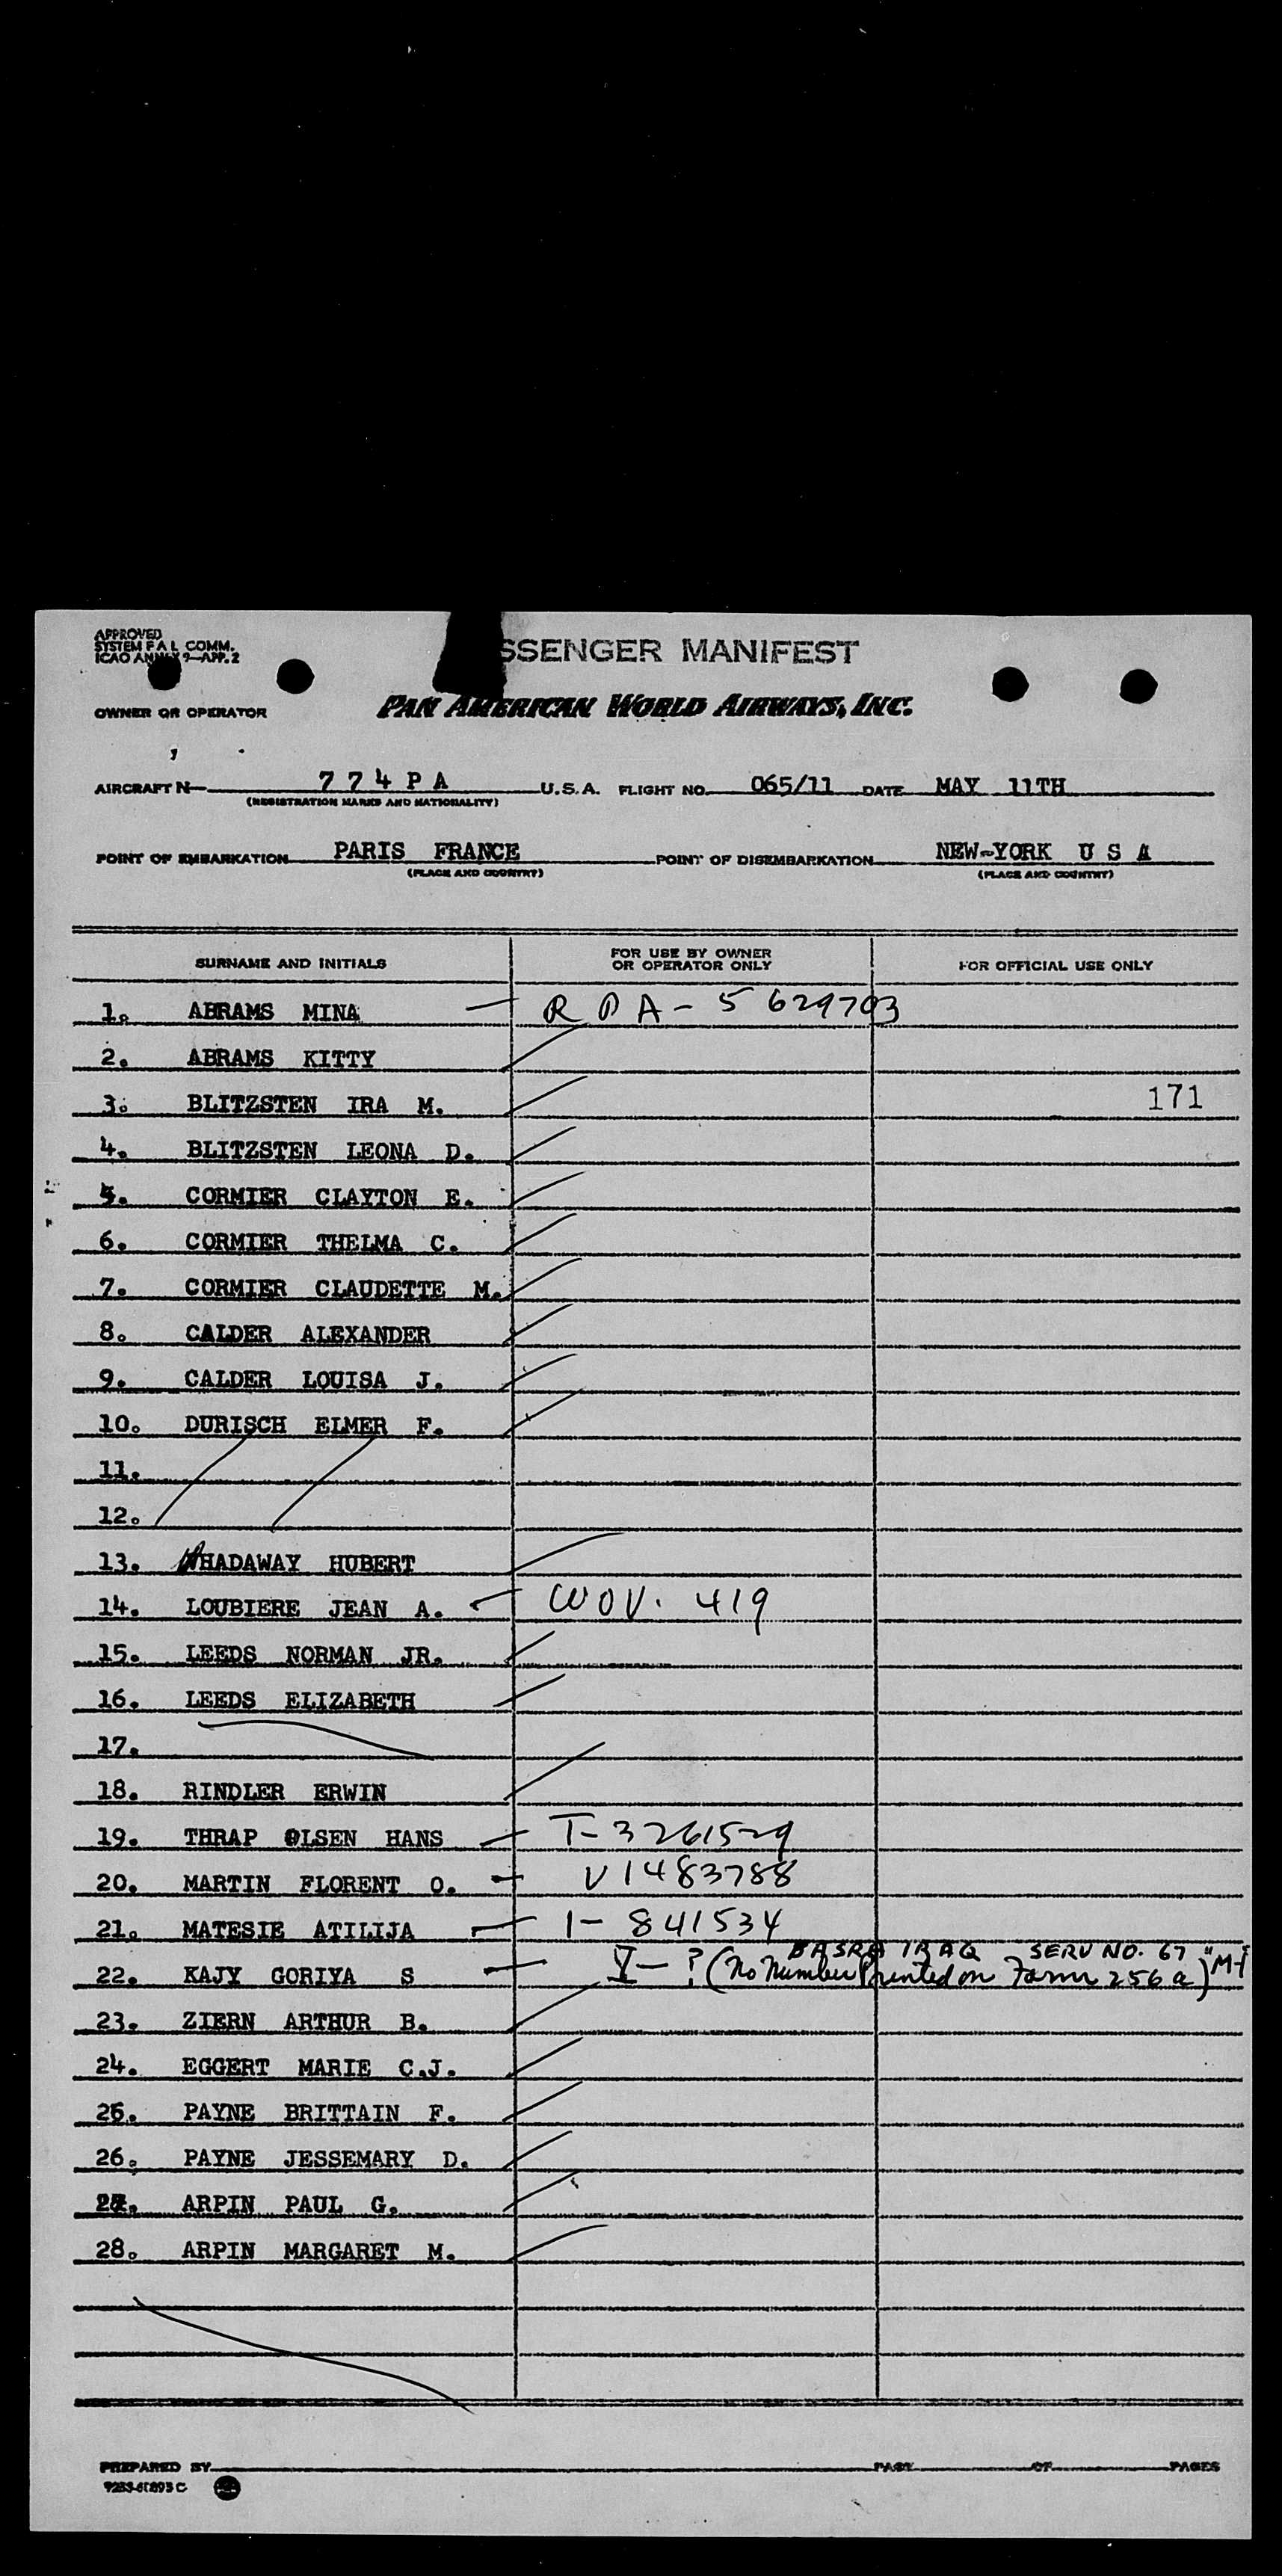 APPROVED
SYSTEM F A L COMM.
ICAO ANNEX 9—APP. 2
SSENGER MANIFEST
OWNER OR OPERATOR PAN AMERICAN WORLD AIRWAYS, INC.
AIRCRAFT N— 7 7 4 P A U.S.A. FLIGHT NO. 065/11 DATE MAY 11TH
(REGISTRATION MARKS AND NATIONALITY)
POINT OF EMBARKATION PARIS FRANCE POINT OF DISEMBARKATION NEW-YORK U S A
(PLACE AND COUNTRY) (PLACE AND COUNTRY)
SURNAME AND INITIALS FOR USE BY OWNER OR OPERATOR ONLY FOR OFFICIAL USE ONLY
1. ABRAMS MINA — R P A - 5 629703
2. ABRAMS KITTY
3. BLITZSTEN IRA M. 171
4. BLITZSTEN LEONA D.
5. CORMIER CLAYTON E.
6. CORMIER THELMA C.
7. CORMIER CLAUDETTE M.
8. CALDER ALEXANDER
9. CALDER LOUISA J.
10. DURISCH ELMER F.
11.
12.
13. HADAWAY HUBERT
14. LOUBIERE JEAN A. WOV. 419
15. LEEDS NORMAN JR.
16. LEEDS ELIZABETH
17.
18. RINDLER ERWIN
19. THRAP OLSEN HANS T-3261529
20. MARTIN FLORENT O. V1483788
21. MATESIE ATILIJA I- 841534
BASRA IRAQ SERV NO. 67
22. KAJY GORIYA S V— ? (No Number Printed on Form 256a) "M-1
23. ZIERN ARTHUR B.
24. EGGERT MARIE C.J.
25. PAYNE BRITTAIN F.
26. PAYNE JESSEMARY D.
27. ARPIN PAUL G.
28. ARPIN MARGARET M.
PREPARED BY PAGE OF PAGES